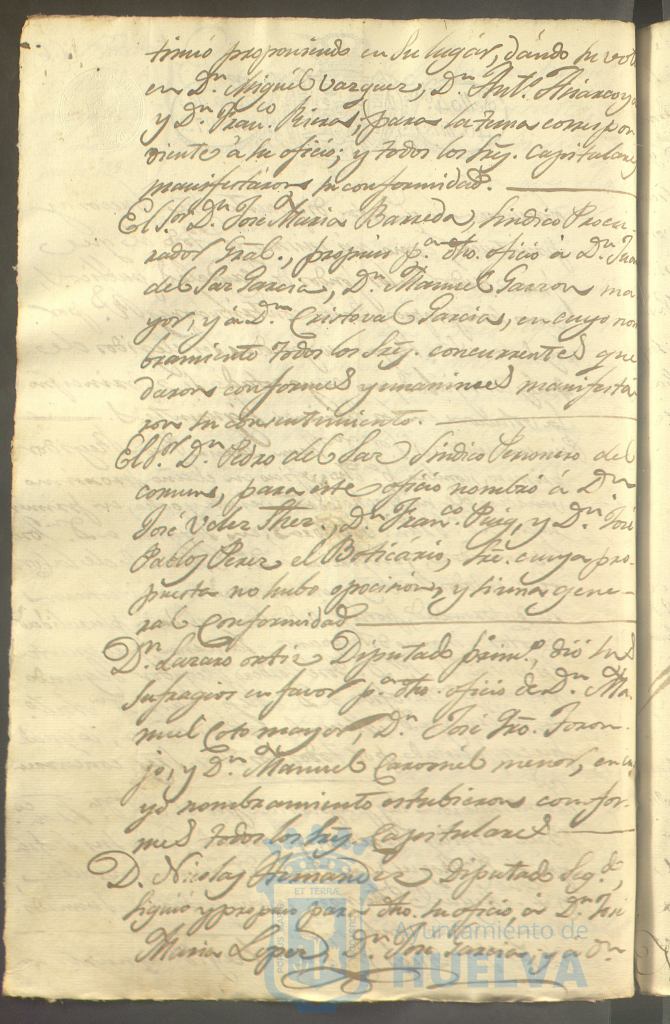 tinuó proponiendo en su lugár, dándo su vot
en Dn. Miguél Vazquez, Dn. Antº.
y Dn. Franco. Rieras; para la terna correspon
diente á su oficio; y todos los Sres. Capitulares
manifestáron su conformidad.
El Sor. Dn. José María Barreda, Síndico Procu
rador Gral., propuso pa. dho. oficio á Dn. Juan
del Saz García, Dn. Manuel Garzon ma
yor, y á Dn. Cristoval García, en cuyo nom
bramiento todos los Sres. concurrentes que
daron conformes y unanimes manifestá
ron su consentimiento.
El Sor. Dn. Pedro del Saz Síndico Personero del
comun, para este oficio nombró á Dn.
José Velez, Dn. Franco. Puig, y Dn. José
Pablos Perez el Boticário, sre. cuya pro-
puesta no hubo oposicion, y si una gene-
ral conformidad
Dn. Lazaro ortiz Diputado prim.º, dió sus
sufragios en favor pa. dho. oficio de Dn. Ma
nuel Coto mayor, Dn. José Joron-
jo, y Dn. Manuel Coronél menor, en cu
yo nombramiento estubieron confor-
mes todos los Sres. Capitulares
D. Nicolas Hernandez Diputado Segdo.,
siguió y propuso para dho. su oficio, á Dn. José
Maria Lopez, Dn. José Garcia, y á Dn
ET TERRÆ
Ayuntamiento de
HUELVA